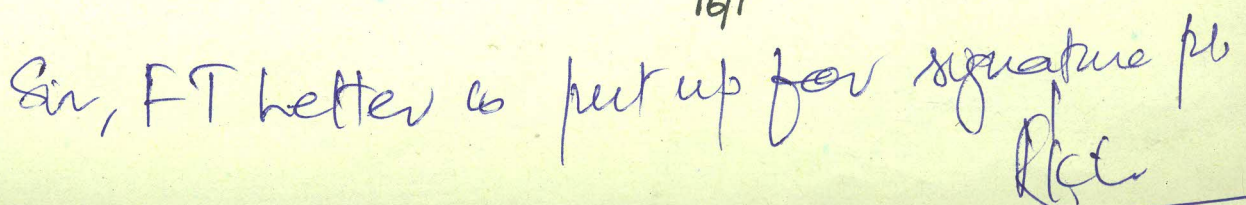 16/1
Sir, FT Letter is put up for signature pl